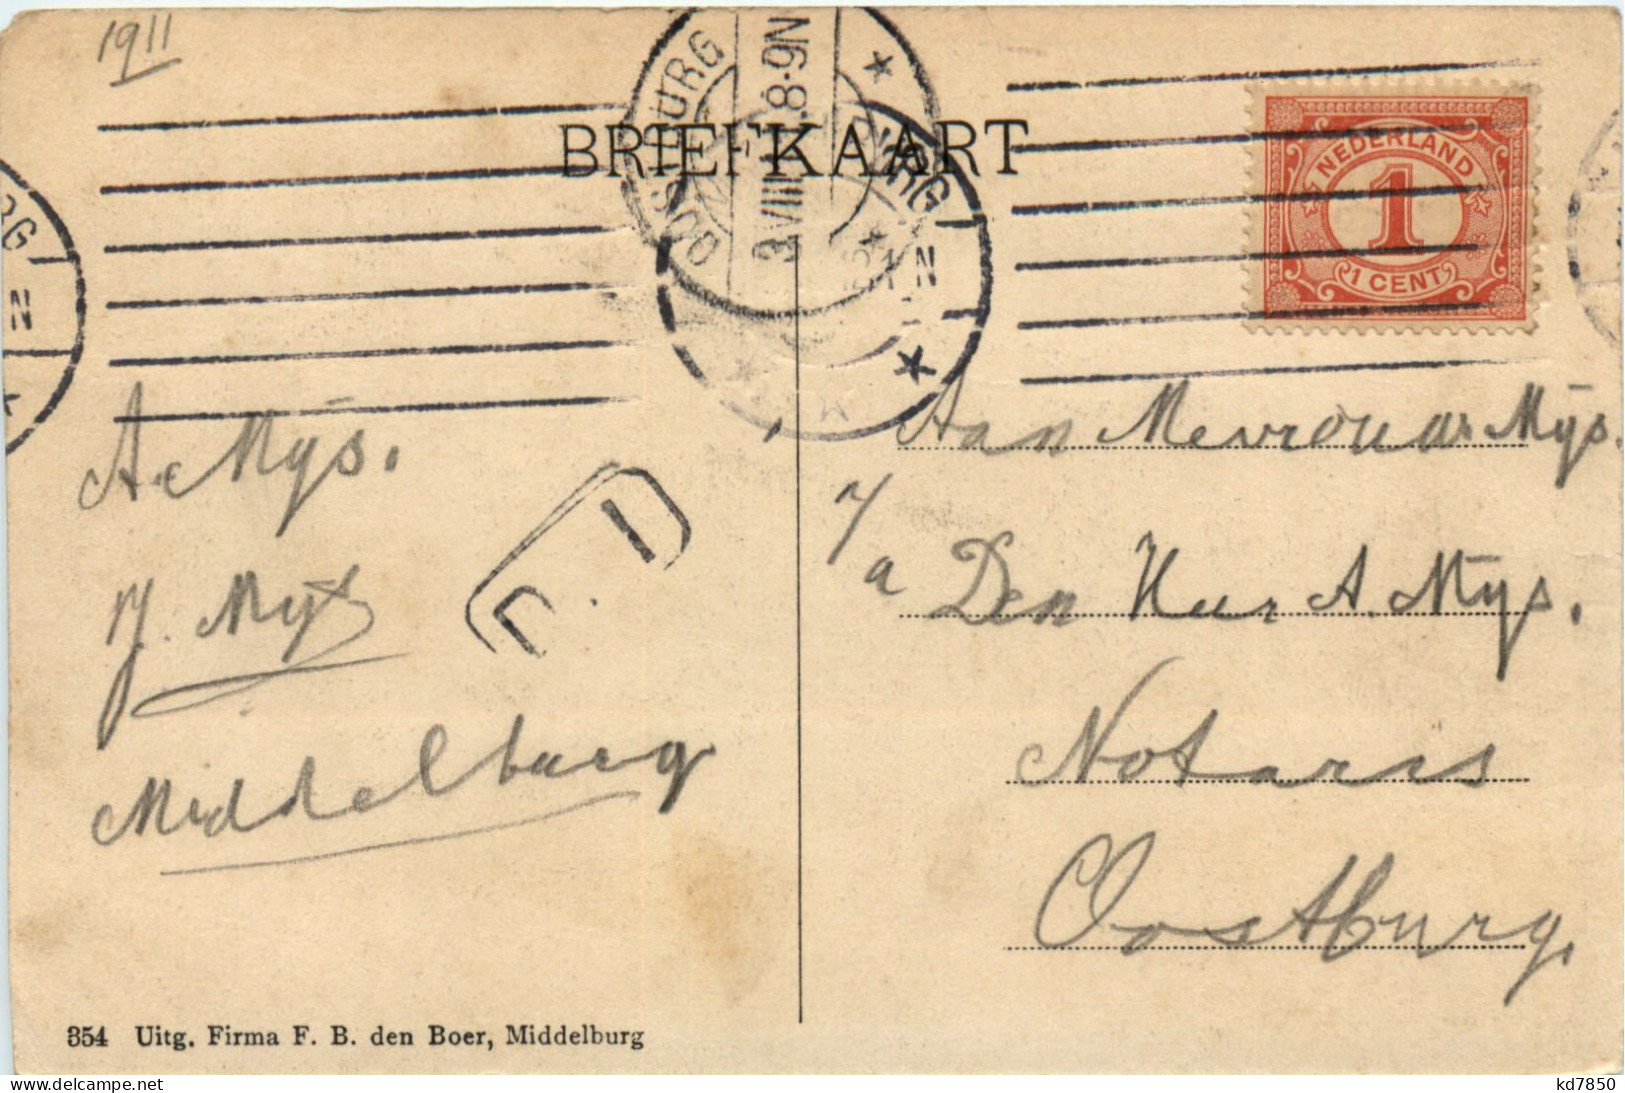 1911
BRIEFKAART
OOSTBURG
3.VIII 8-9N
URG
RG
N
N
NEDERLAND
1
1 CENT
A. Mijs.
J. Mijs
Middelburg
Aan Mevrouw Mijs.
a
Den Heer A. Mijs.
Notaris
Oostburg.
354 Uitg. Firma F. B. den Boer, Middelburg
delcampe.net
kd7850